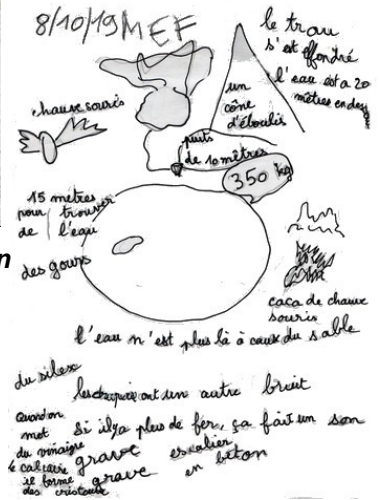 8/10/19 MEF
le trou
s'est effondré
l'eau est a 20
mètres en des
chauve souris
un
cône
d'éboulis
puits
de 10 mêtres
350 kg
15 metres
pour trouver
de l'eau
n
des gours
caca de chauve
souris
l'eau n'est plus là à cause du sable
du silex
ont un autre bruit
Quand on
met
du vinaigre
le calcaire
il forme
des cristaux
Si il y a plus de fer, ça fait un son
grave
grave
escalier
en béton